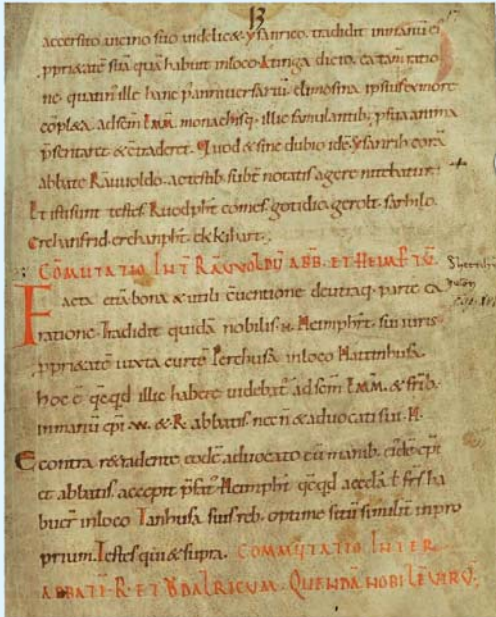 13
accersito vicino suo videlicet ysanrico. tradidit in manū ei
ppriẽtatẽ suā quā habuit in loco Atinga dicto. ea tam̄ ratio
ne. quatin' ille hanc p anniversariū elimosina ipsius ex more
cōplẽta. ad scm̄ Emm̄. monachisq. illic famulantib; p sua anima
p̄sentaret & c̄traderet. Quod & sine dubio idẽ ysanrih corā
abbate Rāuvoldo. ac testib; subt' notatis agere nitebatur.
Et isti sunt testes. Ruodpht comes. gotidio. gerolt. sarhilo.
Erchanfrid. erchanpht. ekkihart.
COMMUTATIO INT' RĀUVOLDŪ ABB. ET HEIMPTŪ.
Facta etiā bona & utili c̄uentione de utraq. parte ca
ratione. Tradidit quidā nobilis. H. Heimpht. sui iuris
ppriẽtatẽ iuxta curtẽ Perchusa in loco Mattinhusa.
hoc ē qcqd illic habere videbat' ad scm̄ Emm̄. & frīb.
in manū epi. W. & R. abbatis. necn̄ & advocati sui. H.
E contra reddente eodē advocato cū manib. eidē epi
et abbatis. accepit p̄fat' Heimpht qcqd aeccla t̄ frs̄ ha
buer' in loco Tanhusa suis reb. optime sitū similit' in pro
prium. Testes qui & supra. COMMUTATIO INTER
ABBATĒ. R. ET VDALRICUM. QUENDĀ NOBILĒ VIRŪ.